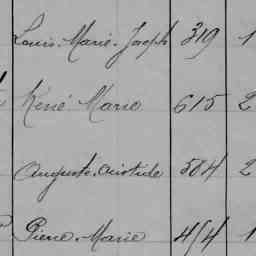 Louis-Marie-Joseph 319 1
René Marie 615 2
Auguste-Aristide 504 2
Pierre-Marie 454 1